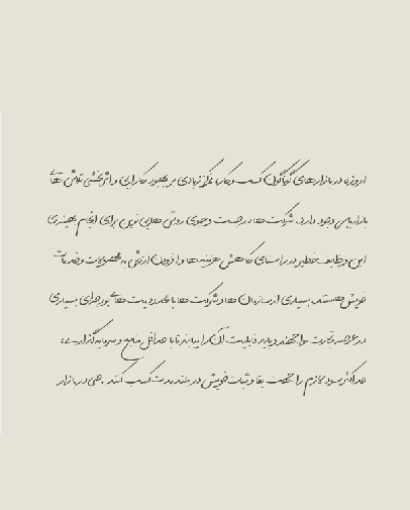 امروزه در بازارهای گوناگون کسب و کار، تمرکز زیادی بر بهبود کارایی و اثربخشی تلاش های
بازاریابی وجود دارد. شرکت ها در جست و جوی روش هایی نوین برای انجام بهینه‌ی
این وظیفه خطیر در راستای کاهش هزینه ها و افزودن ارزش به محصولات و خدمات
خویش هستند. بسیاری از سازمان ها و شرکت ها با محدودیت های بودجه‌ای بسیاری
در عرصه تجارت مواجهند و باید قابلیت آن را بیابند تا با حداقل منابع و سرمایه گذاری،
حداکثر سود لازم را جهت بقا و ثبات خویش در بلند مدت کسب کنند. حتی در بازار